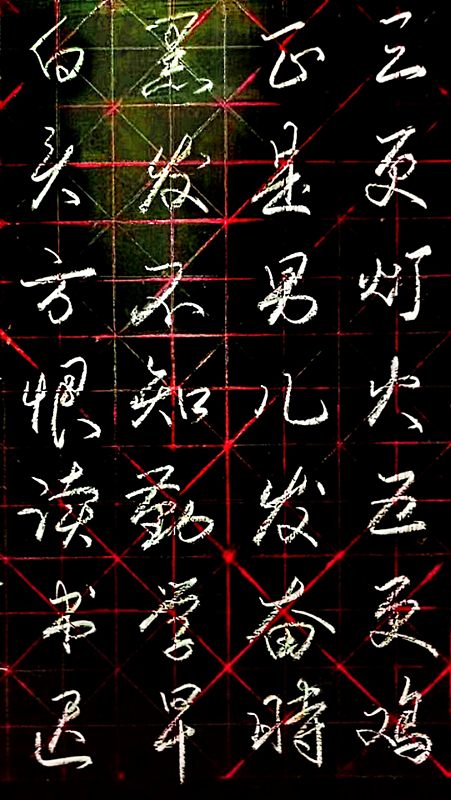 三更灯火五更鸡
正是男儿发奋時
黑发不知勤学早
白头方恨读书迟